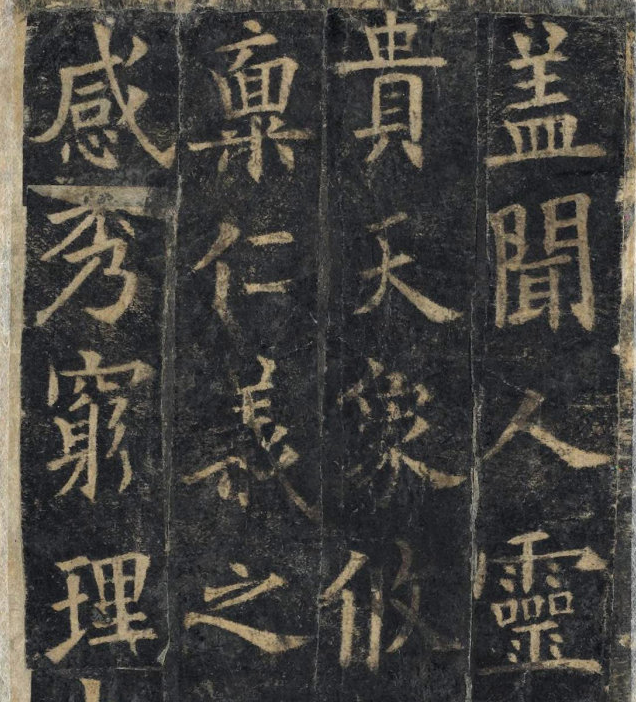 盖聞人靈
貴天象攸
稟仁義之
感秀窮理